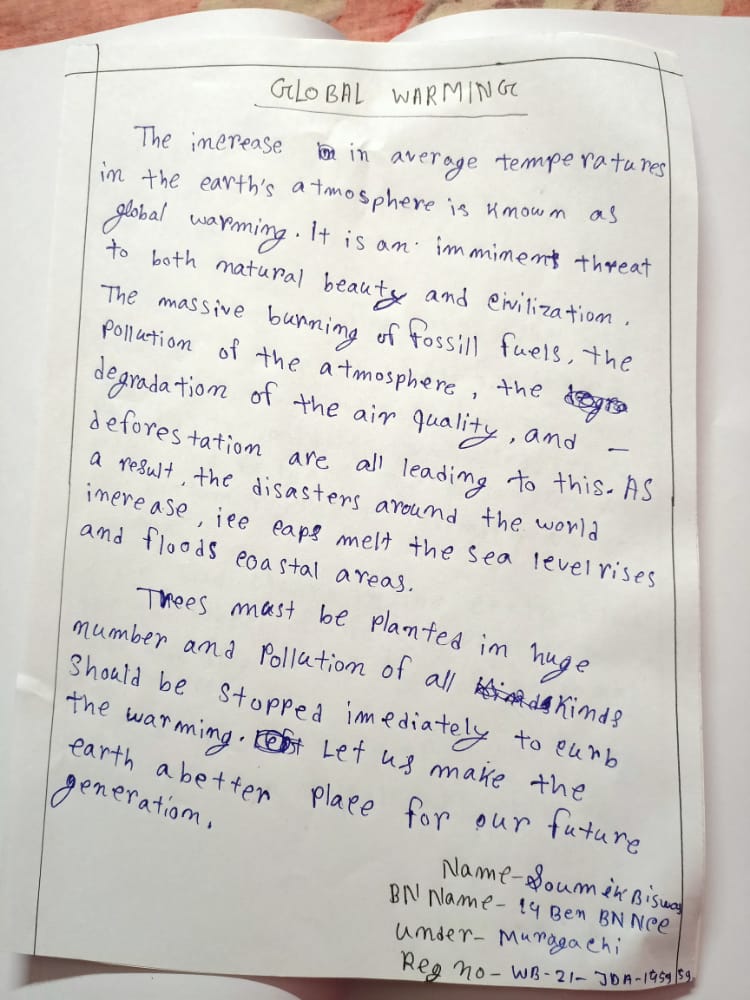 GLOBAL WARMING
The increase in in average temperatures
in the earth's atmosphere is known as
global warming. It is an imminent threat
to both natural beauty and civilization.
The massive burning of fossill fuels, the
pollution of the atmosphere, the degra
degradation of the air quality, and -
deforestation are all leading to this. As
a result, the disasters around the world
increase, ice caps melt the sea level rises
and floods coastal areas.
Trees must be planted in huge
number and pollution of all kinds kinds
should be stopped imediately to curb
the warming. Let us make the
earth a better place for our future
generation.
Name - Soumik Biswas
BN Name - 14 Ben BN Ncc
Under - Muragachi
Reg no - WB-21-JDA-